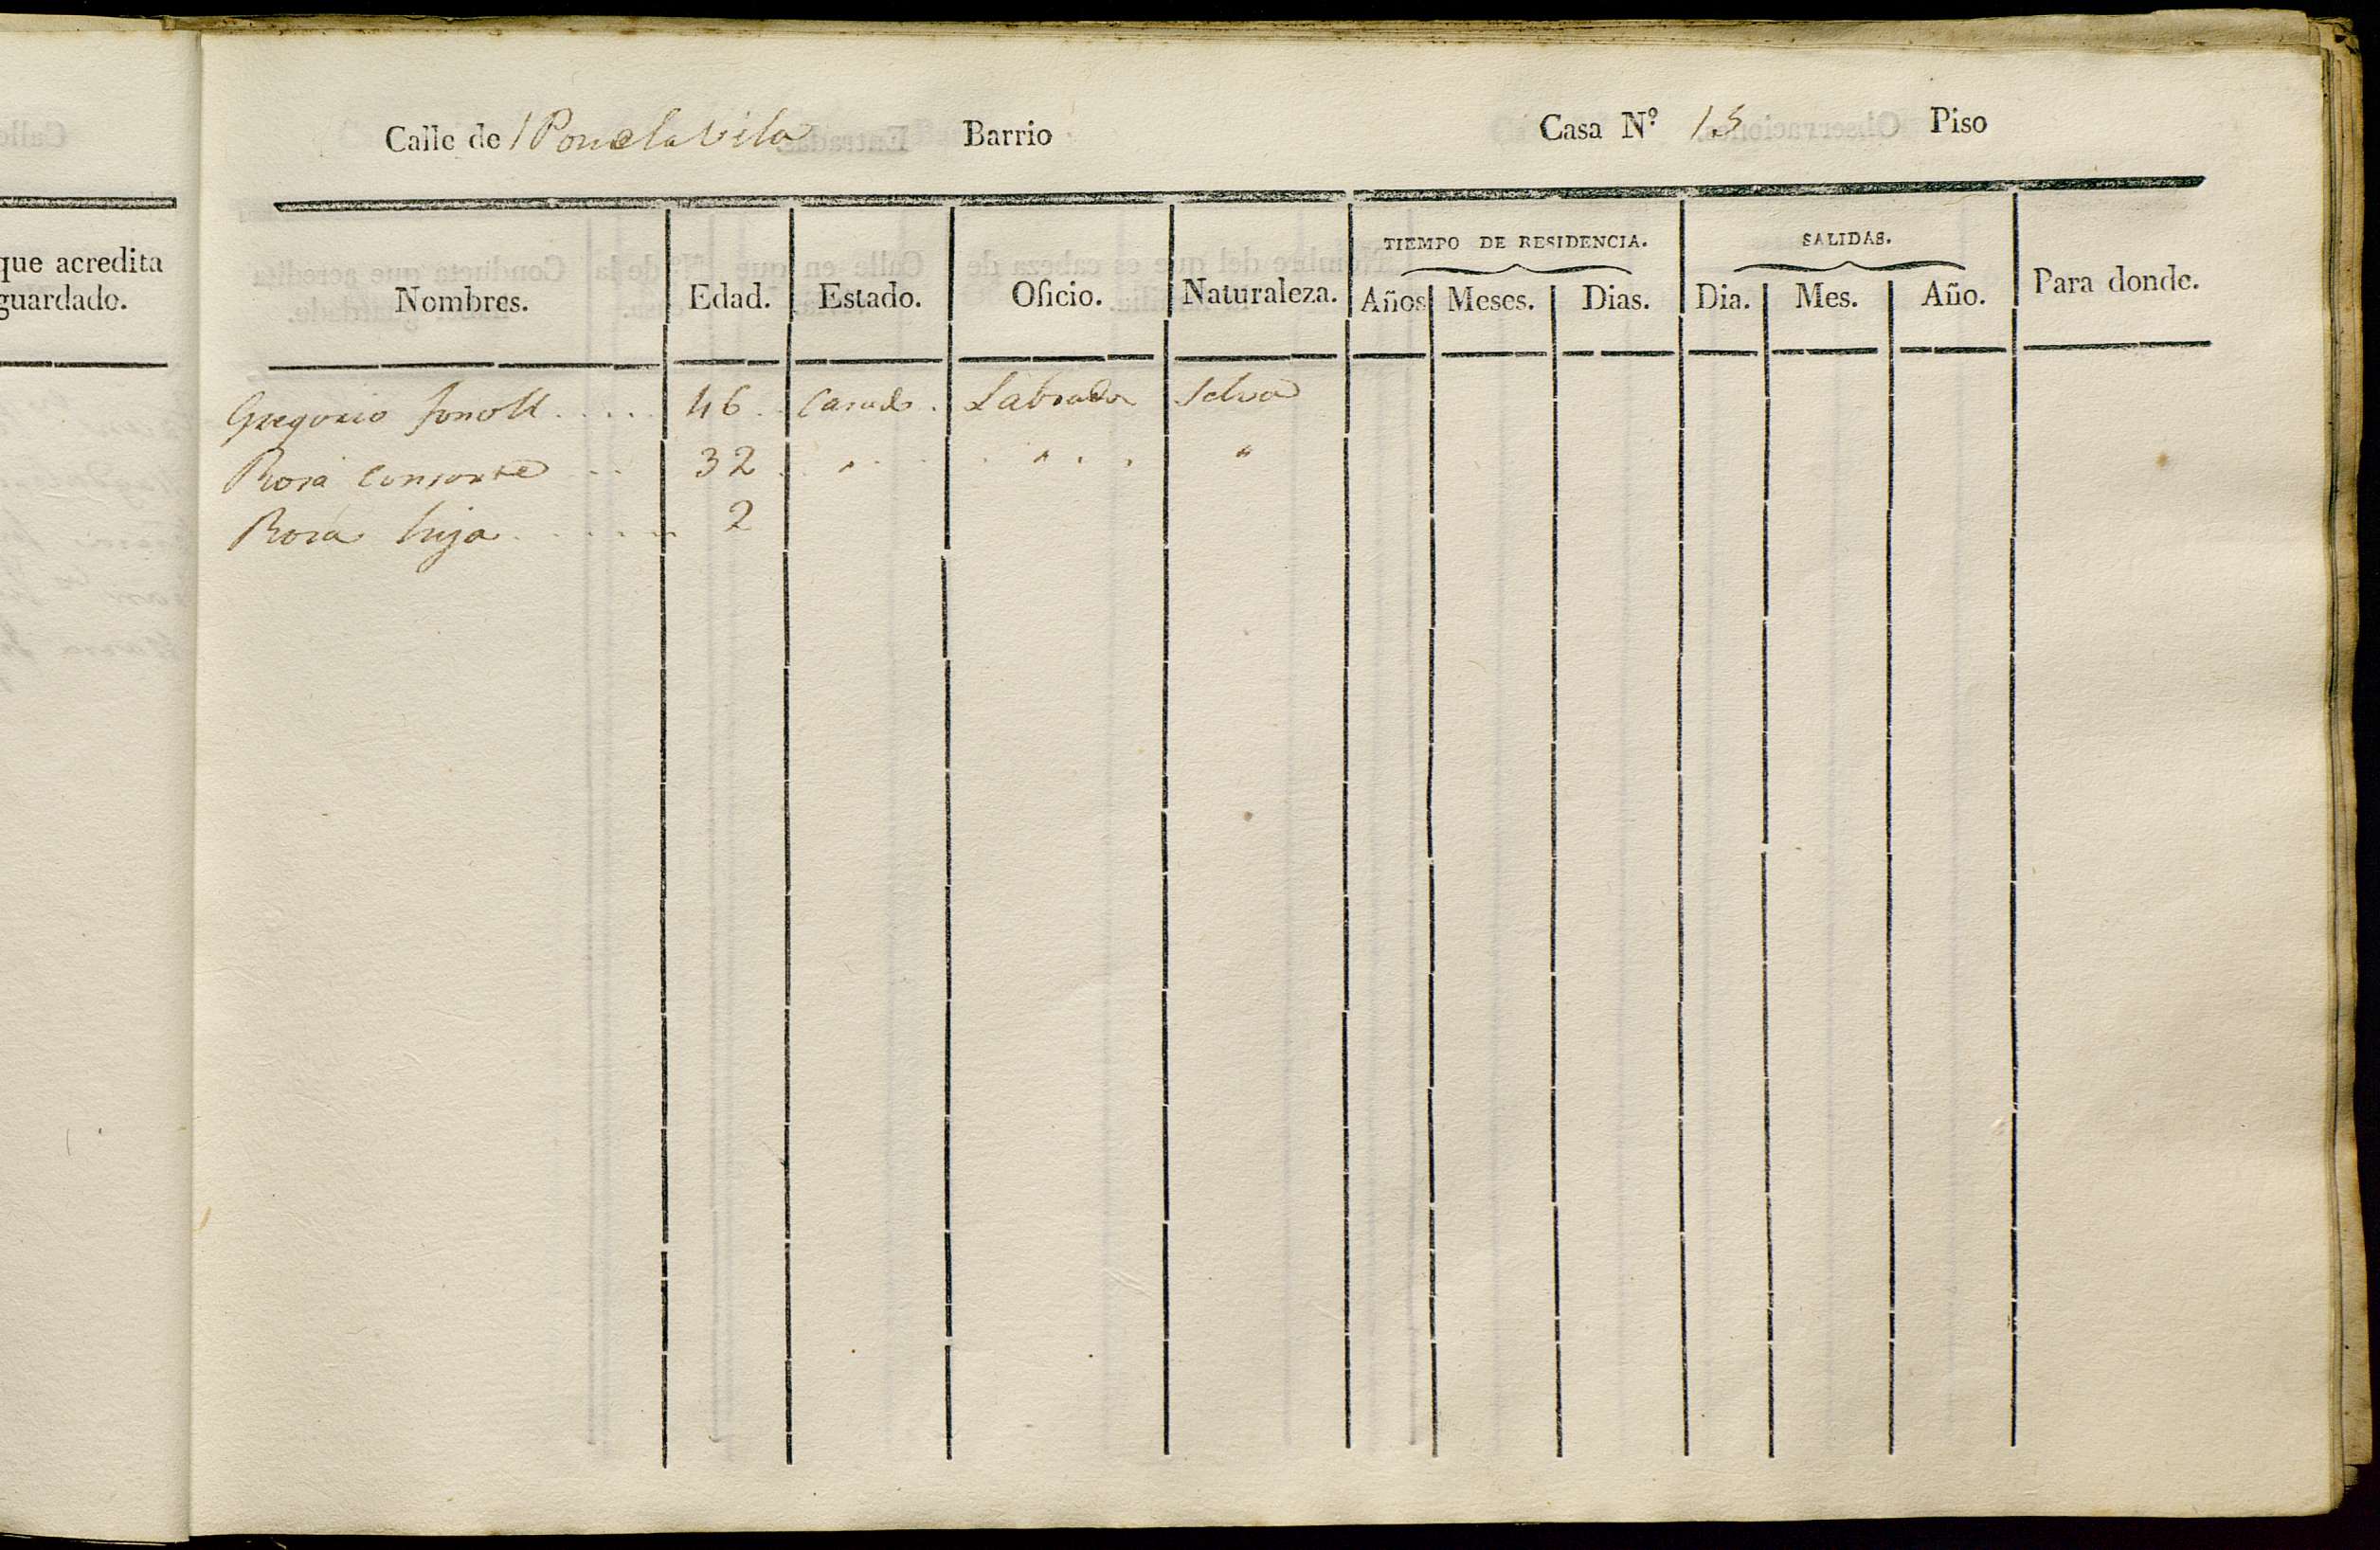 Calle de Barrio Casa N.º 13 Piso
que acredita
guardado.
TIEMPO DE RESIDENCIA. SALIDAS.
Nombres. Edad. Estado. Oficio. Naturaleza. Años Meses. Dias. Dia. Mes. Año. Para donde.
Gregorio fonoll ..... 46 .. Casado . Labrador Selva
Rosa Consorte ... 32 . " . . . " . . "
Rosa hija ...... 2